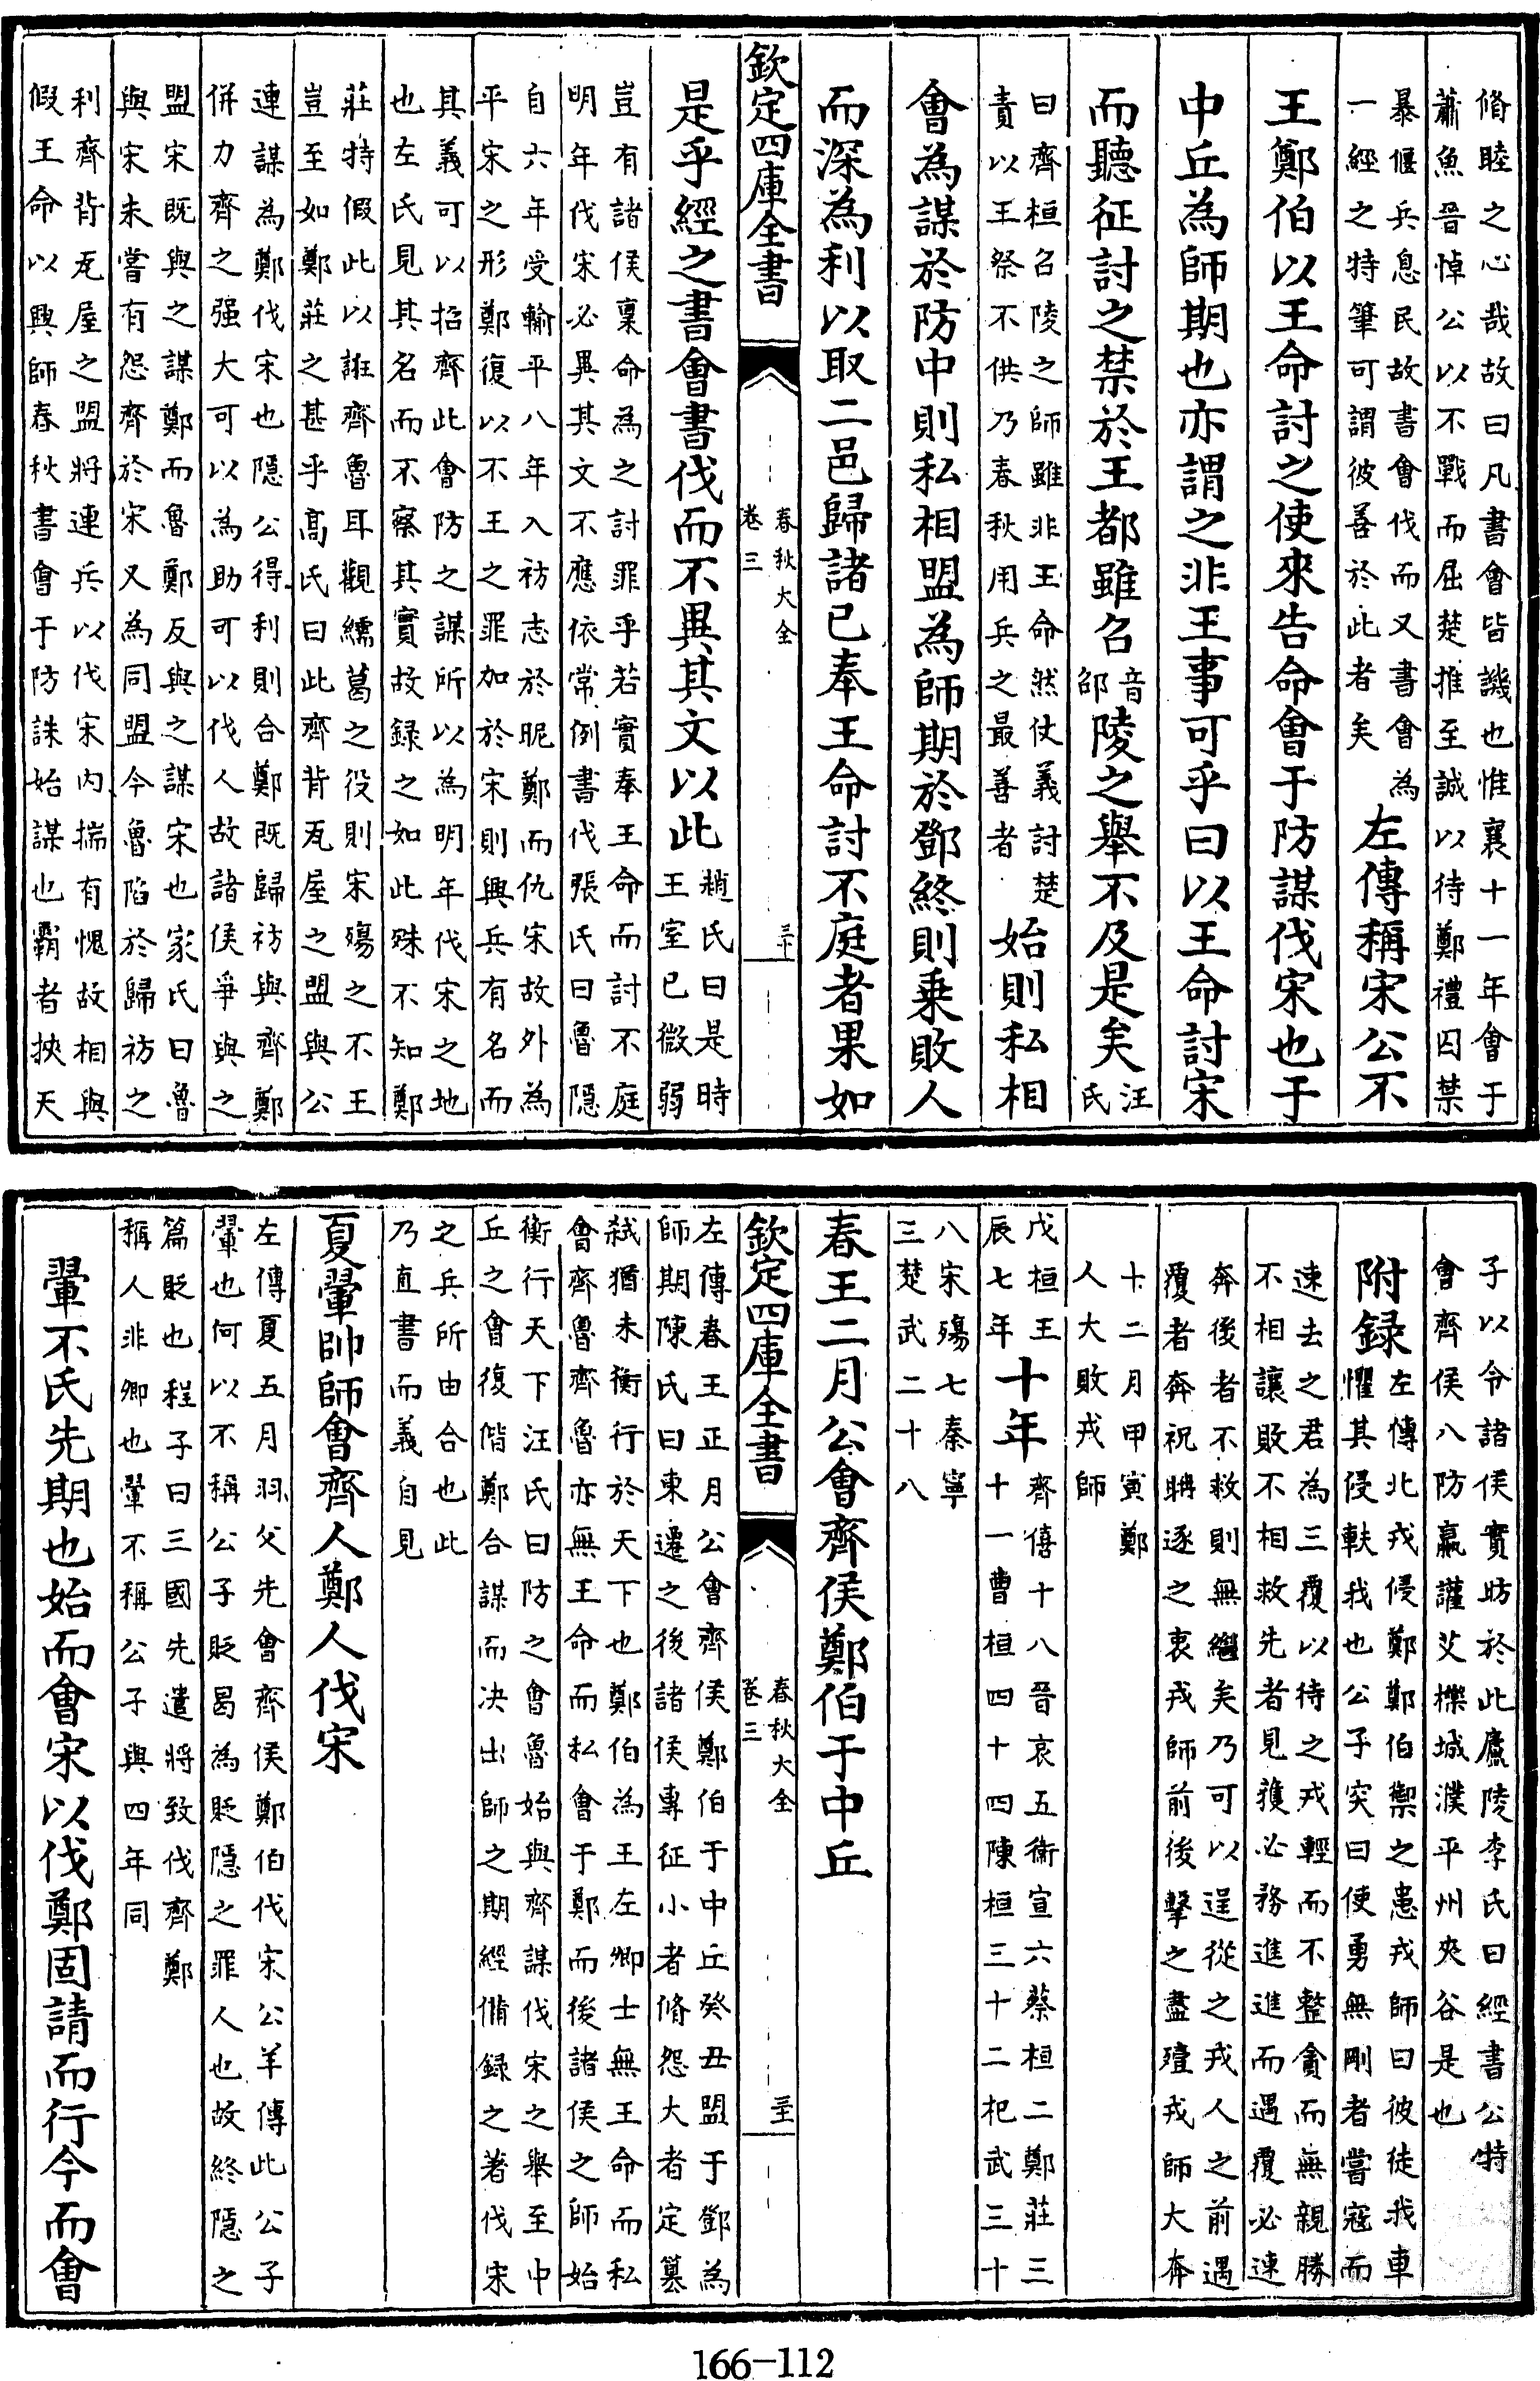 脩睦之心哉故曰凡書會皆譏也惟襄十一年會于
蕭魚晉悼公以不戰而屈楚推至誠以待鄭禮囚禁
暴偃兵息民故書會伐而又書會為
一經之特筆可謂彼善於此者矣
左傳稱宋公不
王鄭伯以王命討之使來告命會于防謀伐宋也于
中丘為師期也亦謂之非王事可乎曰以王命討宋
而聽征討之禁於王都雖召
音
邵
陵之舉不及是矣
汪
氏
曰齊桓召陵之師雖非王命然仗義討楚
責以王祭不供乃春秋用兵之最善者
始則私相
會為謀於防中則私相盟為師期於鄧終則乗敗人
而深為利以取二邑歸諸已奉王命討不庭者果如
欽定四庫全書
春秋大全
卷三
三十
是乎經之書會書伐而不異其文以此
趙氏曰是時
王室已微弱
豈有諸侯稟命為之討罪乎若實奉王命而討不庭
明年伐宋必異其文不應依常例書伐張氏曰魯隱
自六年受輸平八年入祊志於昵鄭而仇宋故外為
平宋之形鄭復以不王之罪加於宋則興兵有名而
其義可以招齊此會防之謀所以為明年伐宋之地
也左氏見其名而不察其實故録之如此殊不知鄭
莊特假此以誑齊魯耳觀繻葛之役則宋殤之不王
豈至如鄭莊之甚乎高氏曰此齊背瓦屋之盟與公
連謀為鄭伐宋也隱公得利則合鄭既歸祊與齊鄭
併力齊之强大可以為助可以伐人故諸侯爭與之
盟宋既與之謀鄭而魯鄭反與之謀宋也家氏曰魯
與宋未嘗有怨齊於宋又為同盟今魯陷於歸祊之
利齊背瓦屋之盟將連兵以伐宋内揣有愧故相與
假王命以興師春秋書會于防誅始謀也霸者挾天
子以令諸侯實昉於此廬陵李氏曰經書公特
會齊侯八防嬴讙艾櫟城濮平州夾谷是也
附録
左傳北戎侵鄭鄭伯禦之患戎師曰彼徒我車
懼其侵軼我也公子突曰使勇無剛者嘗寇而
速去之君為三覆以待之戎輕而不整貪而無親勝
不相讓敗不相救先者見獲必務進進而遇覆必速
奔後者不救則無繼矣乃可以逞從之戎人之前遇
覆者奔祝聃逐之衷戎師前後擊之盡殪戎師大奔
十二月甲寅鄭
人大敗戎師
戊桓王
辰七年
十年
齊僖十八晉哀五衛宣六蔡桓二鄭莊三
十一曹桓四十四陳桓三十二杞武三十
八宋殤七秦寧
三楚武二十八
春王二月公會齊侯鄭伯于中丘
欽定四庫全書
春秋大全
卷三
三十一
左傳春王正月公會齊侯鄭伯于中丘癸丑盟于鄧為
師期陳氏曰東遷之後諸侯專征小者脩怨大者定簒
弑猶未衡行於天下也鄭伯為王左卿士無王命而私
會齊魯齊魯亦無王命而私會于鄭而後諸侯之師始
衡行天下汪氏曰防之會魯始與齊謀伐宋之舉至中
丘之會復偕鄭合謀而决出師之期經備録之著伐宋
之兵所由合也此
乃直書而義自見
夏翬帥師會齊人鄭人伐宋
左傳夏五月羽父先會齊侯鄭伯伐宋公羊傳此公子
翬也何以不稱公子貶曷為貶隱之罪人也故終隱之
篇貶也程子曰三國先遣將致伐齊鄭
稱人非卿也翬不稱公子與四年同
翬不氏先期也始而會宋以伐鄭固請而行今而會
166-112